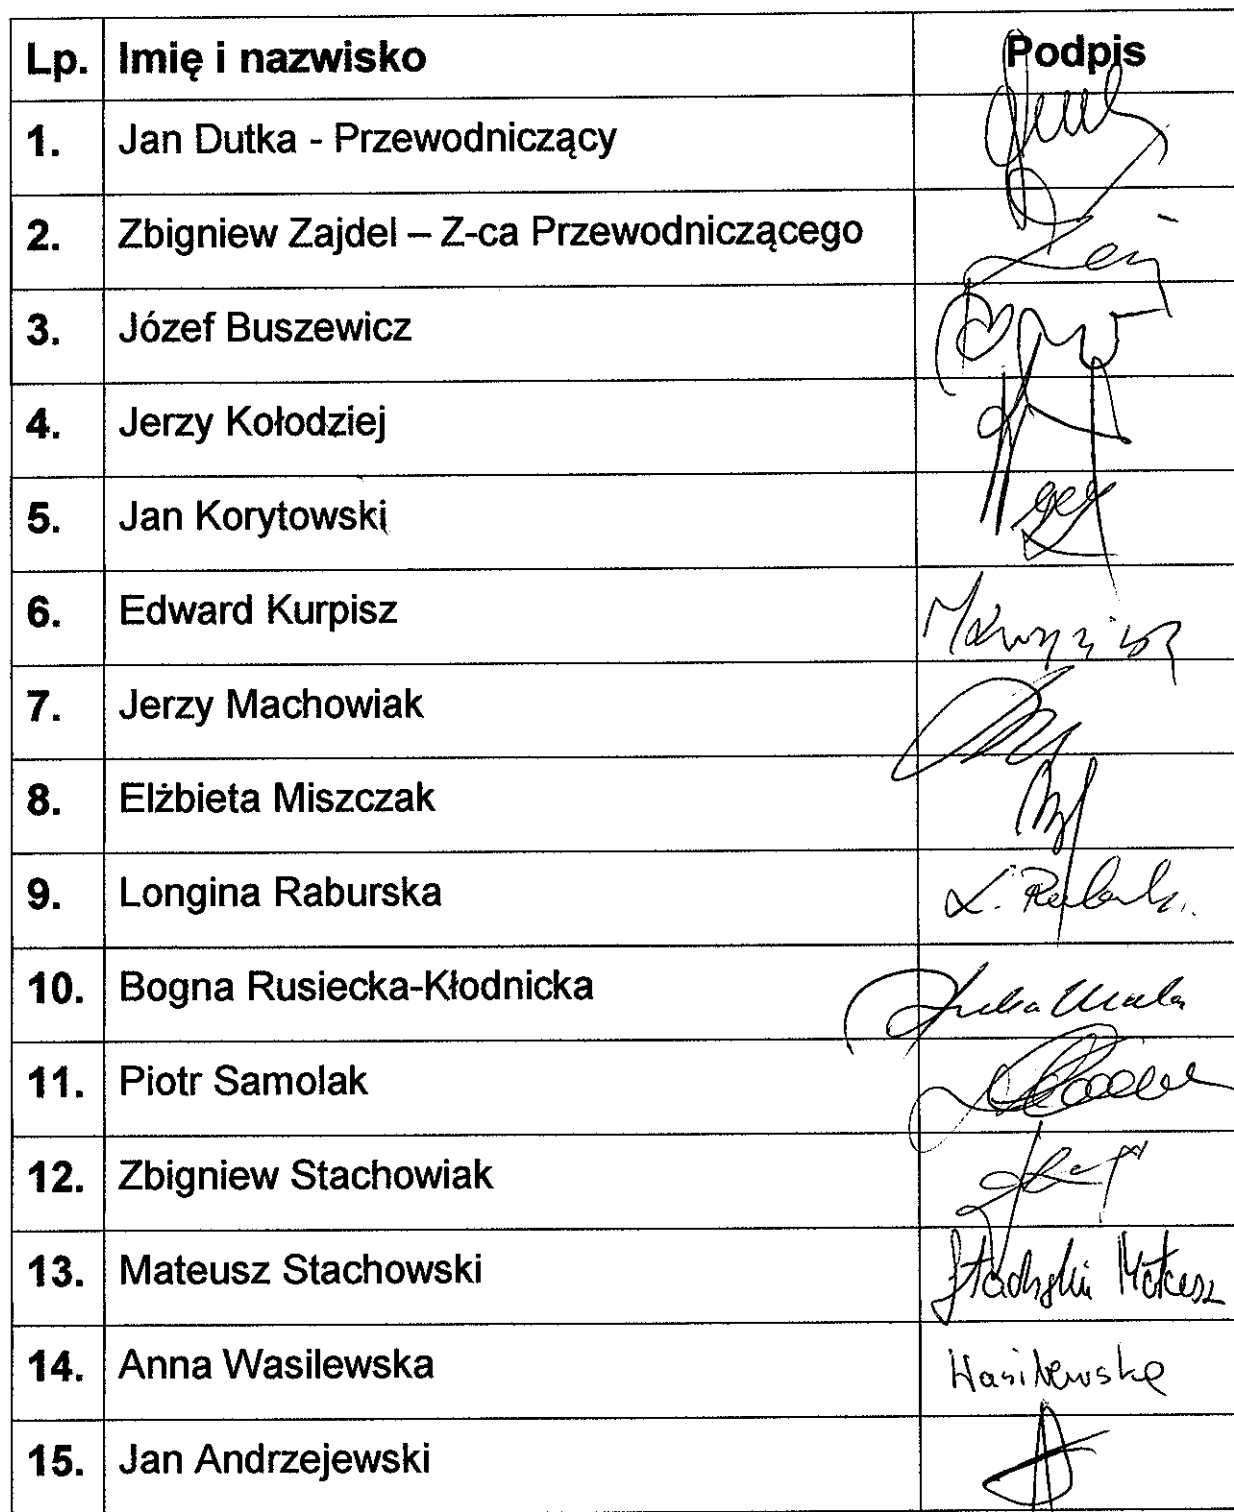 Lp. Imię i nazwisko Podpis
1. Jan Dutka - Przewodniczący
2. Zbigniew Zajdel – Z-ca Przewodniczącego
3. Józef Buszewicz
4. Jerzy Kołodziej
5. Jan Korytowski
6. Edward Kurpisz
7. Jerzy Machowiak
8. Elżbieta Miszczak
9. Longina Raburska
10. Bogna Rusiecka-Kłodnicka
11. Piotr Samolak
12. Zbigniew Stachowiak
13. Mateusz Stachowski Stachowski Mateusz
14. Anna Wasilewska Wasilewska
15. Jan Andrzejewski